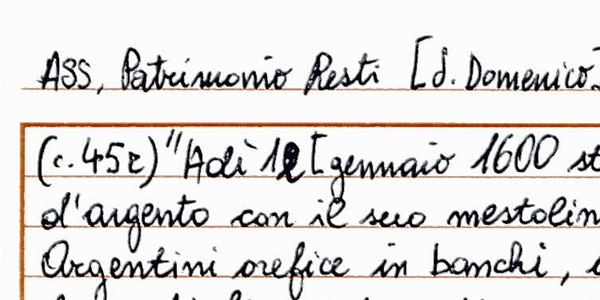 ASS, Patrimonio Resti [d. Domenico]
(c. 45r) "Adì 12 [gennaio 1600 st
d'argento con il suo mestolin
Argentini orefice in banchi,